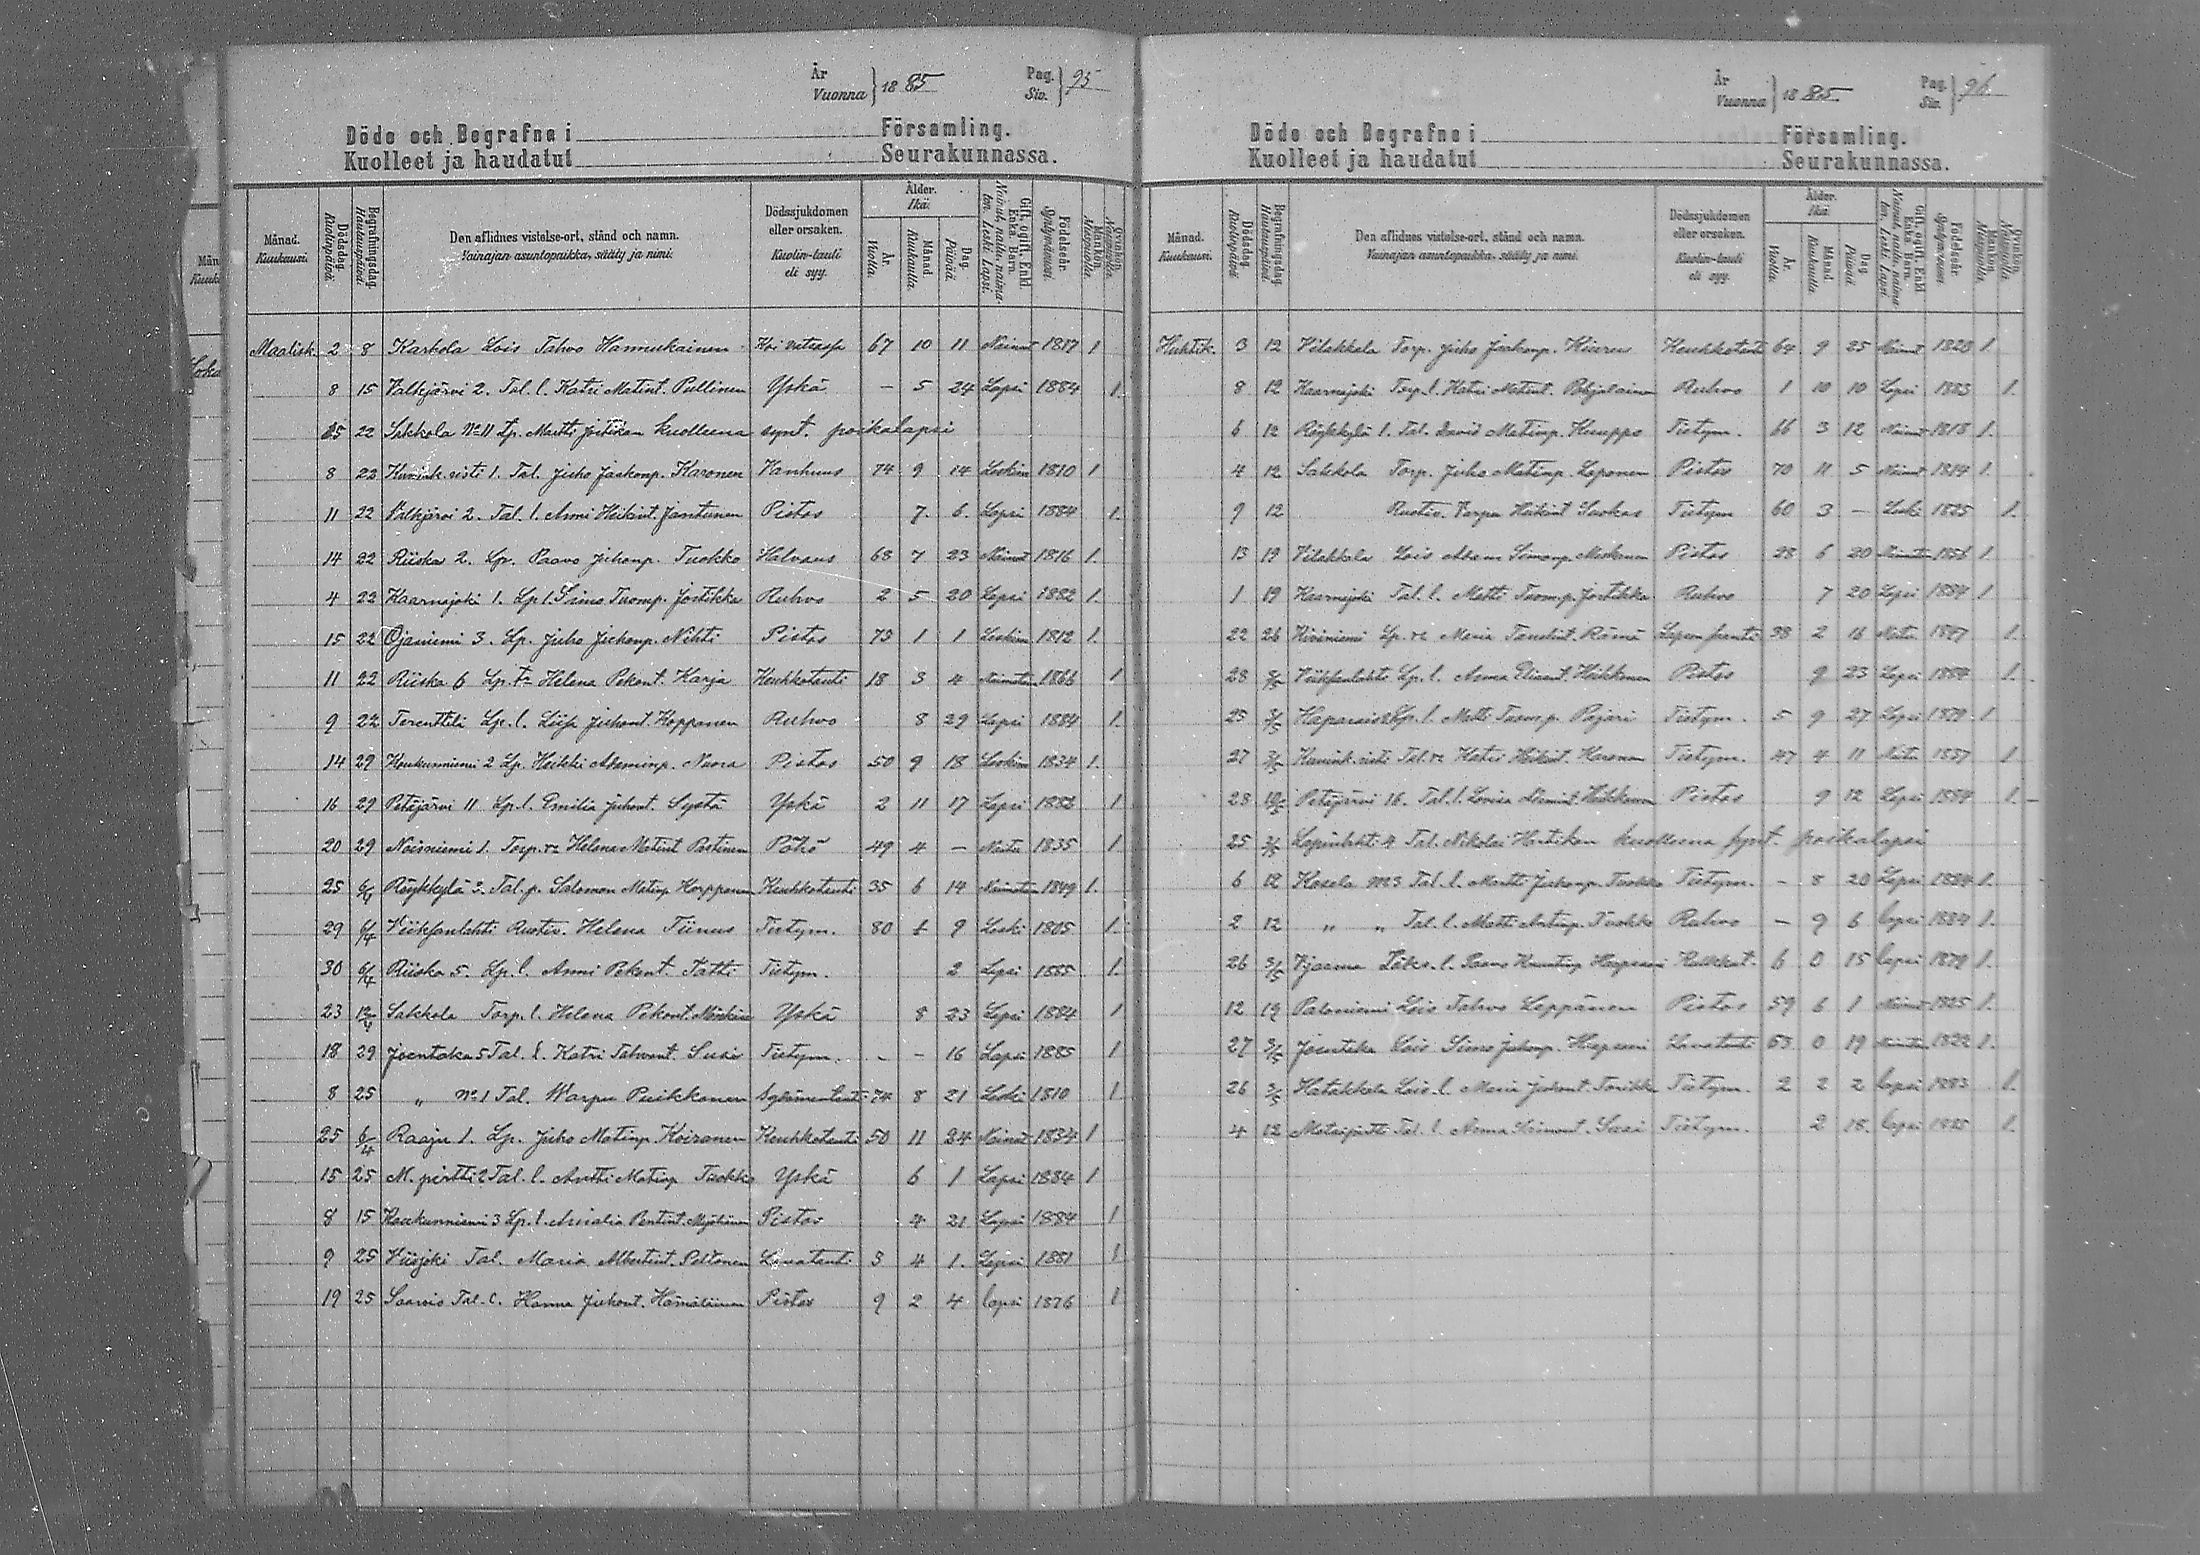 År
Vuonna } 18 85
Pag.
Siv. } 95
Döde och Begrafne i Församling.
Kuolleet ja haudatut Seurakunnassa.
Månad. Kuukausi.
Dödsdag. Kuolinpäivä.
Begrafningsdag. Hautauspäivä.
Den aflidnes vistelse-ort, stånd och namn.
Vainajan asuntopaikka, sääty ja nimi.
Dödssjukdomen eller orsaken.
Kuolin-tauti eli syy.
Ålder. Ikä.
År. Vuotta.
Månad. Kuukautta.
Dag. Päivää.
Gift, ogift, Enkl. Enka, Barn.
Nainut, naitu, naimaton, Leski, Lapsi.
Födelseår. Syntymävuosi.
Mankön. Miespuolia.
Qvinkön. Naispuolia.
Maalisk. 2 8 Karhola Lois Tahvo Hannukainen 67 10 11 Nainut 1817 1
8 15 Valkjärvi 2. Tal. l. Katri Matint. Pullinen Yskä – 5 24 Lapsi 1884 1.
15 22 Sakkola No 11 Lp. Martti Jortikan kuolleena synt. poikalapsi
8 22 Kunink.risti 1. Tal. Juho Jaakonp. Karonen Vanhuus 74 9 14 Leskim 1810 1
11 22 Valkjärvi 2. Tal. l. Anni Heikint. Jantunen Pistos 7. 6. Lapsi 1884 1.
14 22 Riiska 2. Lp. Paavo Juhonp. Tuokko Halvaus 68 7 23 Nainut 1816 1.
4 22 Haarnajoki 1. Lp. l. Simo Tuomp. Jortikka Ruhvo 2 5 20 Lapsi 1882 1.
15 22 Ojaniemi 3. Lp. Juho Juhonp. Nihti Pistos 73 1 1 Leskim 1812 1.
11 22 Riiska 6 Lp. tr Helena Pekont. Karja Keuhkotauti 18 3 4 Naimaton 1866 1
9 22 Terenttilä Lp. l. Liisa Juhont. Kopponen Ruhvo 8 29 Lapsi 1884 1.
14 29 Haukunniemi 2 Lp. Heikki Adaminp. Nuora Pistos 50 9 18 Leskim 1834 1.
16 29 Petäjärvi 11 Lp. l. Emilia Juhont. Systä Yskä 2 11 17 Lapsi 1882 1
20 29 Noisniemi 1. Torp. va Helena Matint Pöhö 49 4 – Naitu 1835 1
25 6/4 Röykkylä 3. Tal. p. Salomon Matinp Korpponen Keuhkotauti 35 6 14 Naimaton 1849 1.
29 6/4 Viiksanlahti Ruotiv. Helena Tiinus Tietym. 80 9 Leski 1805 1.
30 6/4 Riiska 5. Lp. l. Anni Pekont. Tatti Tietym. 2 Lapsi 1885 1.
23 12/4 Sakkola Torp. l. Helena Pekont. Yskä 8 23 Lapsi 1884 1
18 29 Joentaka 5 Tal. l. Katri Tahvont. Susi Tietym. - – 16 Lapsi 1885 1
8 25 " No 1 Tal. Warpu Puikkonen Sydämentauti 74 8 21 Leski 1810 1
25 6/4 Raaju 1. Lp. Juho Matinp. Koiranen Keuhkotauti 50 11 24 Nainut 1834 1
15 25 M. pirtti 2 Tal. l. Antti Matinp Tuokko Yskä 6 1 Lapsi 1884 1
8 15 Haukunniemi 3 Lp. l. Amalia Pentint. Pistos 4 21 Lapsi 1884 1
9 25 Viisjoki Tal. Maria Albertint. Peltonen Lavatauti 3 4 1. Lapsi 1881 1
19 25 Tal. l. Hanna Juhont. Hämäläinen Pistos 9 2 4 lapsi 1876 1
År
Vuonna } 18 85
Pag.
Siv. } 96
Döde och Begrafne i Församling.
Kuolleet ja haudatut Seurakunnassa.
Månad. Kuukausi.
Dödsdag. Kuolinpäivä.
Begrafningsdag. Hautauspäivä.
Den aflidnes vistelse-ort, stånd och namn.
Vainajan asuntopaikka, sääty ja nimi.
Dödssjukdomen eller orsaken.
Kuolin-tauti eli syy.
Ålder. Ikä.
År. Vuotta.
Månad. Kuukautta.
Dag. Päivää.
Gift, ogift, Enkl. Enka, Barn.
Nainut, naitu, naimaton, Leski, Lapsi.
Födelseår. Syntymävuosi.
Mankön. Miespuolia.
Qvinkön. Naispuolia.
Huhtik. 3 12 Vilakkala Torp. Juho Jaakonp. Kiuru Keuhkotauti 64 9 25 Nainut 1820 1.
8 12 Haarnajoki Torp. l. Katri Matint. Pohjalainen Ruhvo 1 10 10 Lapsi 1883 1.
6 12 Röykkylä 1. Tal. David Matinp. Kuuppo Tietym. 66 3 12 Nainut 1818 1.
4 12 Sakkola Torp. Juho Matinp. Loponen Pistos 70 11 5 Nainut 1814 1.
9 12 Ruotiv. Varpu Heikint Tietym 60 3 – Leski 1825 1.
13 19 Vilakkala Lois Adam Simonp. Pistos 28 6 20 Naimaton 1856 1.
1 19 Haarnajoki Tal. l. Matti Tuomp. Jortikka Ruhvo 7 20 Lapsi 1884 1
22 26 Kiviniemi Lp. va Maria Rämä Lapsen 38 2 16 Naitu 1847 1.
28 3/5 Viiksanlahti Lp. l. Anna Heikkonen Pistos 9 23 Lapsi 1884 1.
25 3/5 Haparais Lp. l. Matti Tuomp. Pajari Tietym. 5 9 27 Lapsi 1879 1
27 3/5 Kunink.risti Tal. va Katri Heikint. Karonen Tietym. 47 4 11 Naitu 1837 1
28 10/5 Petäjärvi 16. Tal. l. Loviisa Heikkonen Pistos 9 12 Lapsi 1884 1.
25 3/5 Lapinlahti 4 Tal. Nikolai kuolleena synt. poikalapsi
6 12 Kasela No 3 Tal. l. Martti Juhonp. Tuokko Tietym. - 8 20 Lapsi 1884 1.
2 12 " " Tal. l. Matti Antinp. Tuokko Ruhvo – 9 6 lapsi 1884 1.
26 3/5 l. Paavo 6 0 15 lapsi 1879 1.
12 19 Paloniemi Lois Tahvo Loppänen Pistos 59 6 1 Nainut 1825 1.
27 3/5 Joentaka Lois Simo Juhonp. Lavatauti 63 0 19 Naimaton 1822 1.
26 3/5 Hatakkala Lois. l. Maria Juhont. Tietym. 2 2 2 lapsi 1883 1.
4 12 Metsäpirtti Tal. l. Anna Simont. Susi Tietym. 2 18. lapsi 1885 1.